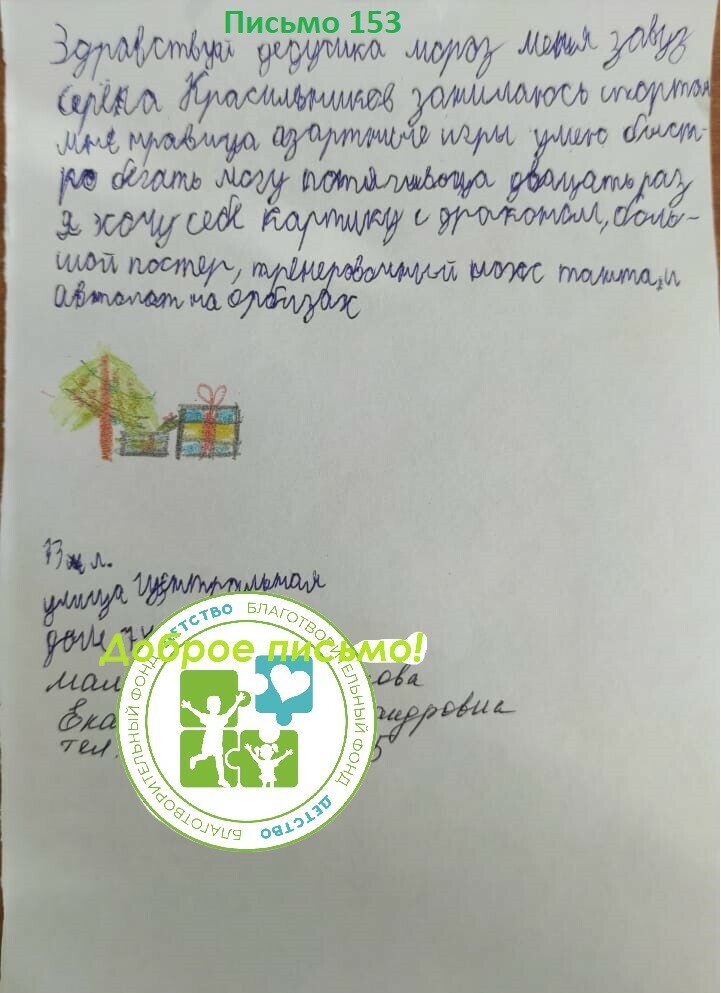 Письмо 153
Здравствуй дедушка мороз меня завуз
Серёжа Красильников занимаюсь спортом
мне нравица азартние игры умею быст-
ро бегать могу потягивоца двацать раз
я хочу себе картину с драконом, боль-
шой постер, тренеровочный нож танто, и
автомат на орбизах
13 л.
улица Центральная
дом
Доброе письмо!
БЛАГОТВОРИТЕЛЬНЫЙ ФОНД ДЕТСТВО
БЛАГОТВОРИТЕЛЬНЫЙ ФОНД ДЕТСТВО
тел.